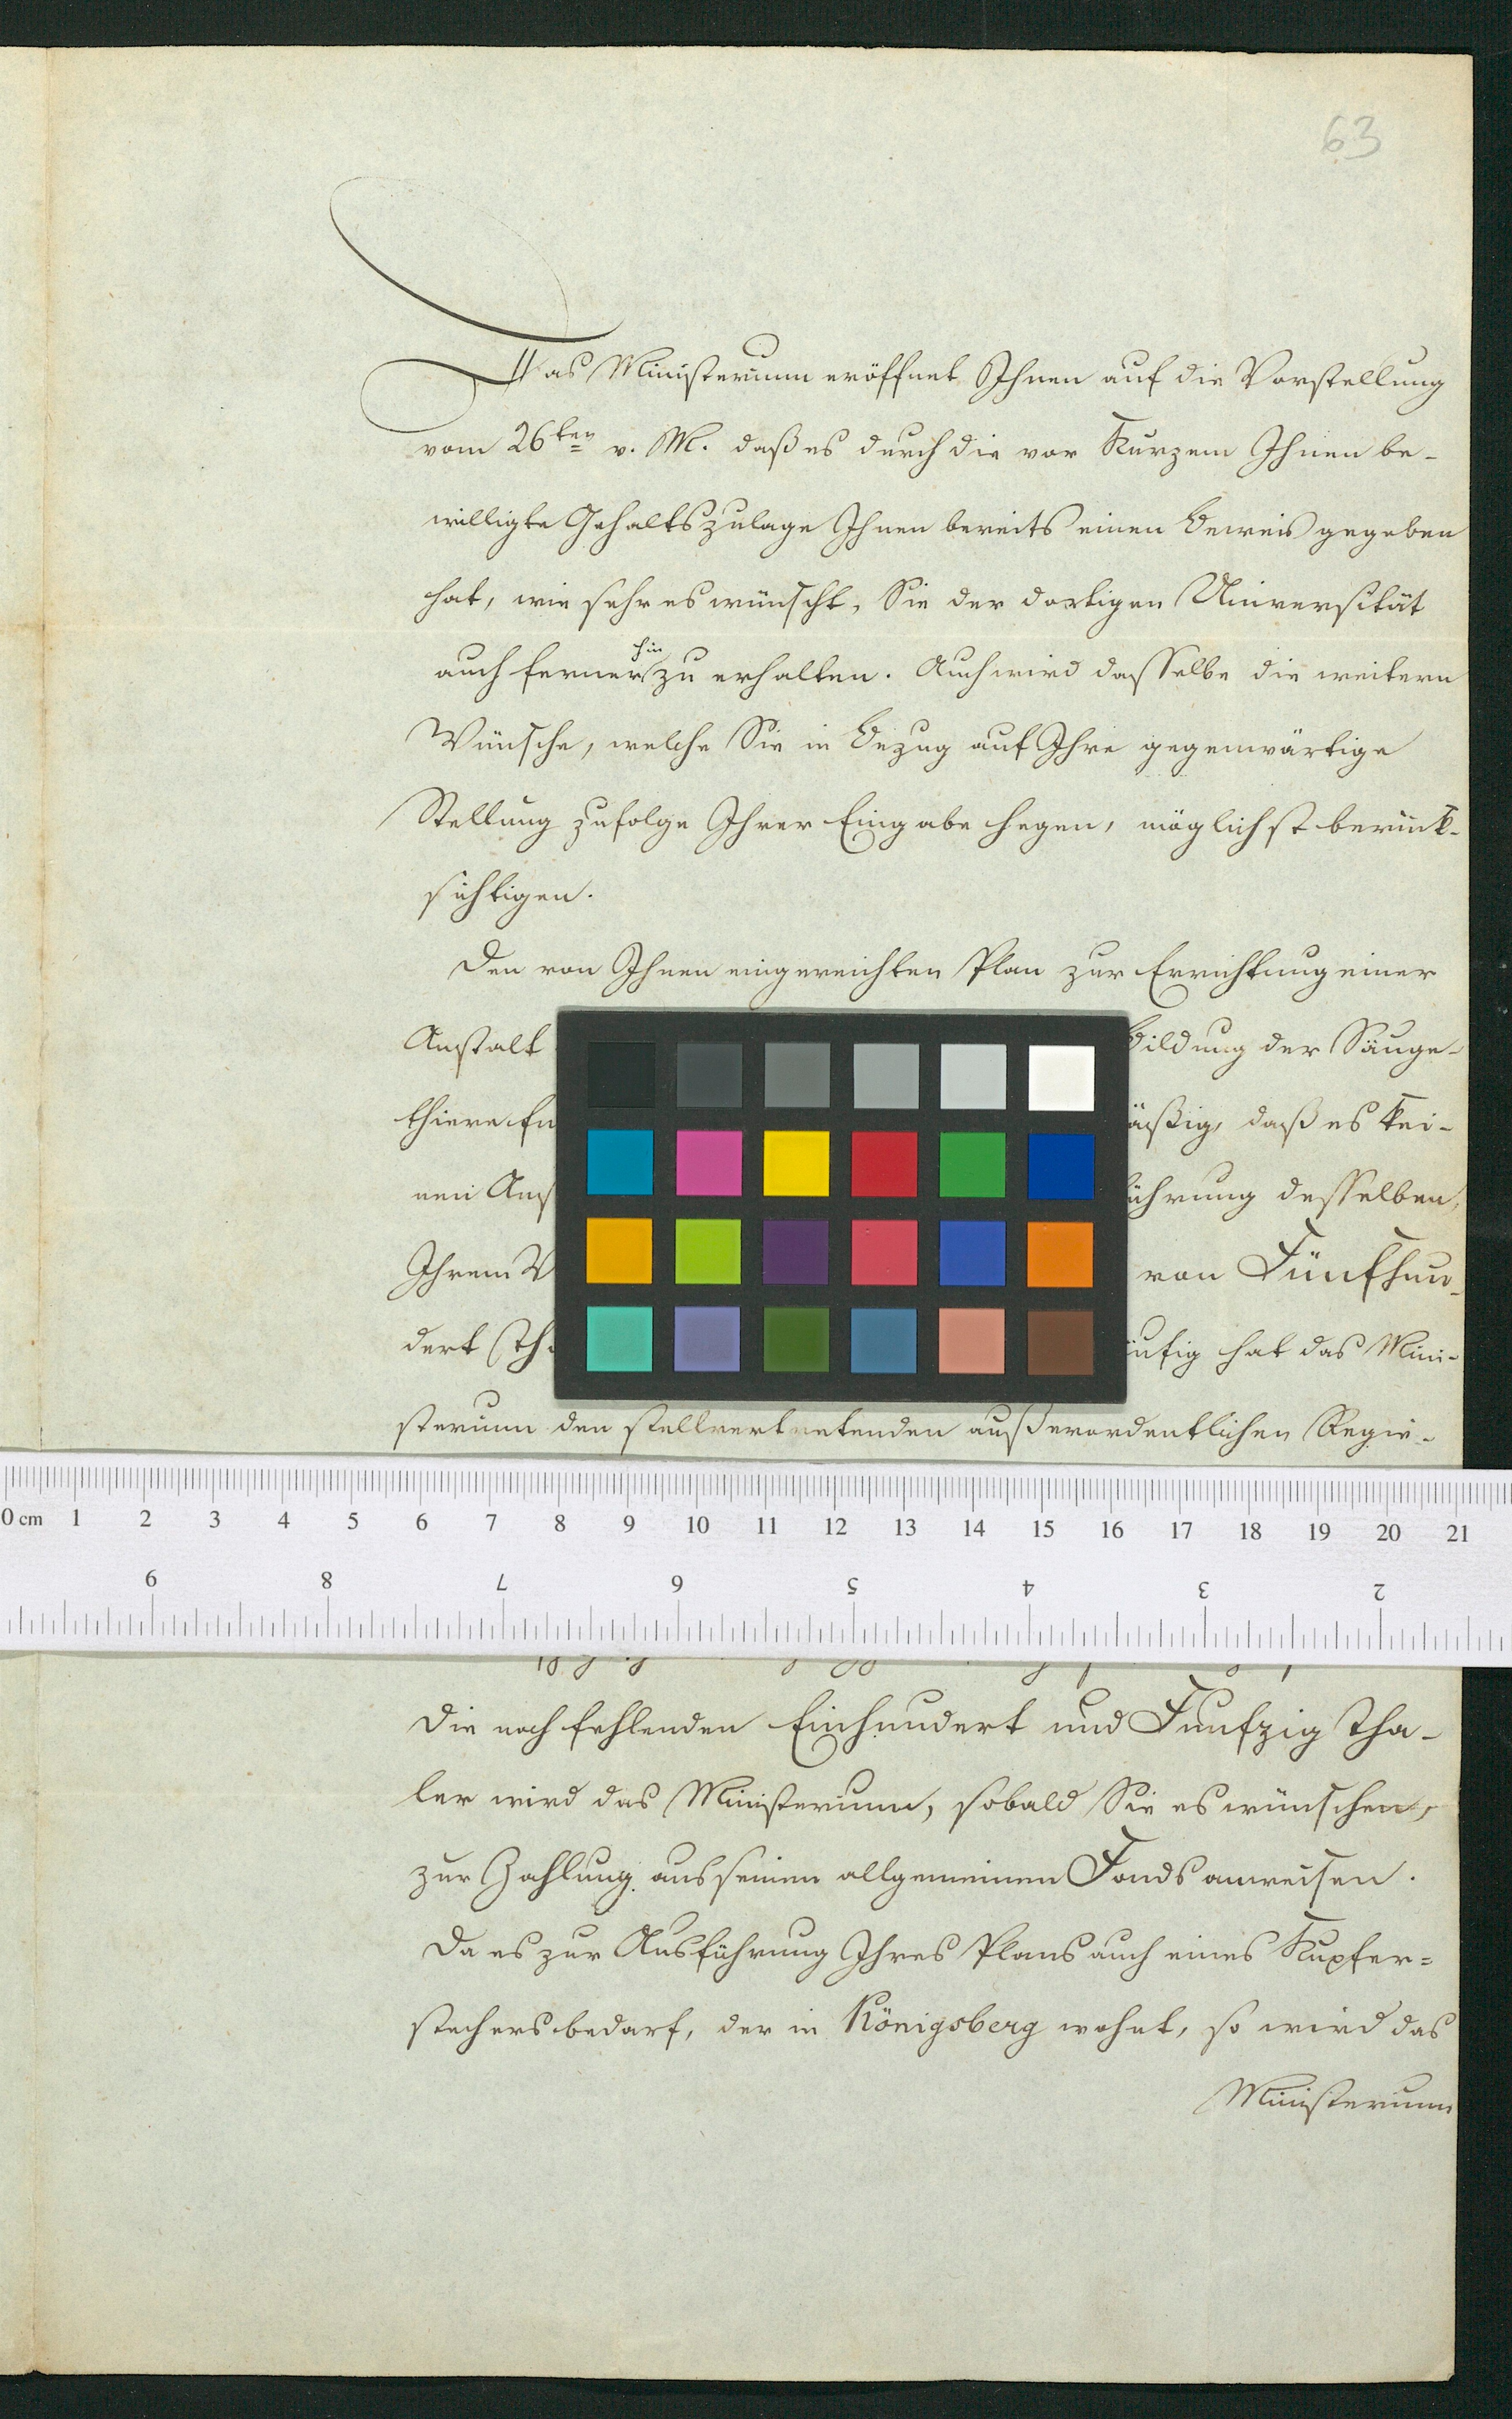 63
Das Ministerium eröffnet Ihnen auf die Vorstellung
vom 26ten v. M. daß es durch die vor Kurzem Ihnen be-
willigte Gehaltszulage Ihnen bereits einen Beweis gegeben
hat, wie sehr es wünscht, Sie der dortigen Universität
auch fernerhin zu erhalten. Auch wird dasselbe die weitern
Wünsche, welche Sie in Bezug auf Ihre gegenwärtige
Stellung zufolge Ihrer Eingabe hegen, möglichst berück-
sichtigen.
Den von Ihnen eingereichten Plan zur Errichtung einer
Anstalt bildung der Säuge-
thiere äßig, daß es kei-
nen Ans ührung desselben,
Ihrem V von Fünfhun-
dert Th äufig hat das Mini-
sterium den stellvertretenden außerordentlichen Regie-
0 cm 1 2 3 4 5 6 7 8 9 10 11 12 13 14 15 16 17 18 19 20 21
9 8 7 6 5 4 3 2
Die noch fehlenden Einhundert und Funfzig Tha-
ler wird das Ministerium, sobald Sie es wünschen,
zur Zahlung aus seinen allgemeinen Fonds anweisen.
Da es zur Ausführung Ihres Plans auch eines Kupfer=
stechers bedarf, der in Königsberg wohnt, so wird das
Ministerium